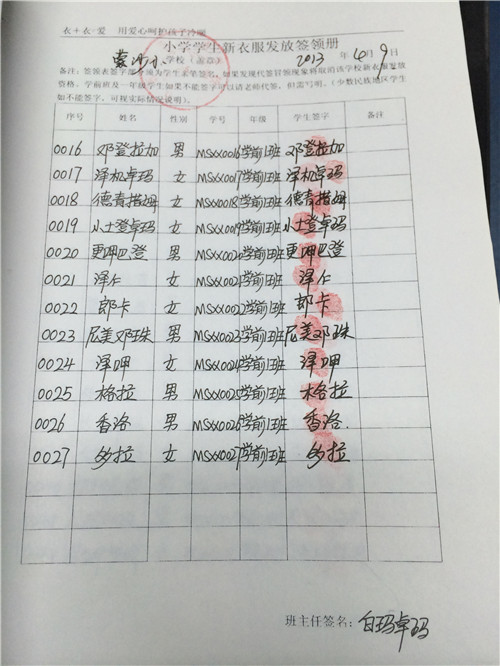 衣+衣=爱 用爱心呵护孩子冷暖
小学学生新衣服发放签领册
蒙沙小学校(盖章) 2013 年 4月 9 日
备注:签领表签字部分须为学生亲笔签名,如果发现代签冒领现象将取消该学校新衣服发放
资格,学前班及一年级学生如果不能签字可以请老师代签,但需写明。(少数民族地区学生
如不能签字,可视实际情况说明)。
序号 姓名 性别 学号 年级 学生签字 备注
0016 邓登拉加 男 MSXX0016 学前1班 邓登拉加
0017 泽机卓玛 女 MSXX0017 学前1班 泽机卓玛
0018 德青措姆 女 MSXX0018 学前1班 德青措姆
0019 小土登卓玛 女 MSXX0019 学前1班 小土登卓玛
0020 更呷巴登 男 MSXX0020 学前1班 更呷巴登
0021 泽仁 女 MSXX0021 学前1班 泽仁
0022 郎卡 女 MSXX0022 学前1班 郎卡
0023 尼美邓珠 男 MSXX0023 学前1班 尼美邓珠
0024 泽呷 女 MSXX0024 学前1班 泽呷
0025 格拉 男 MSXX0025 学前1班 格拉
0026 香洛 男 MSXX0026 学前1班 香洛
0027 多拉 女 MSXX0027 学前1班 多拉
班主任签名: 白玛卓玛